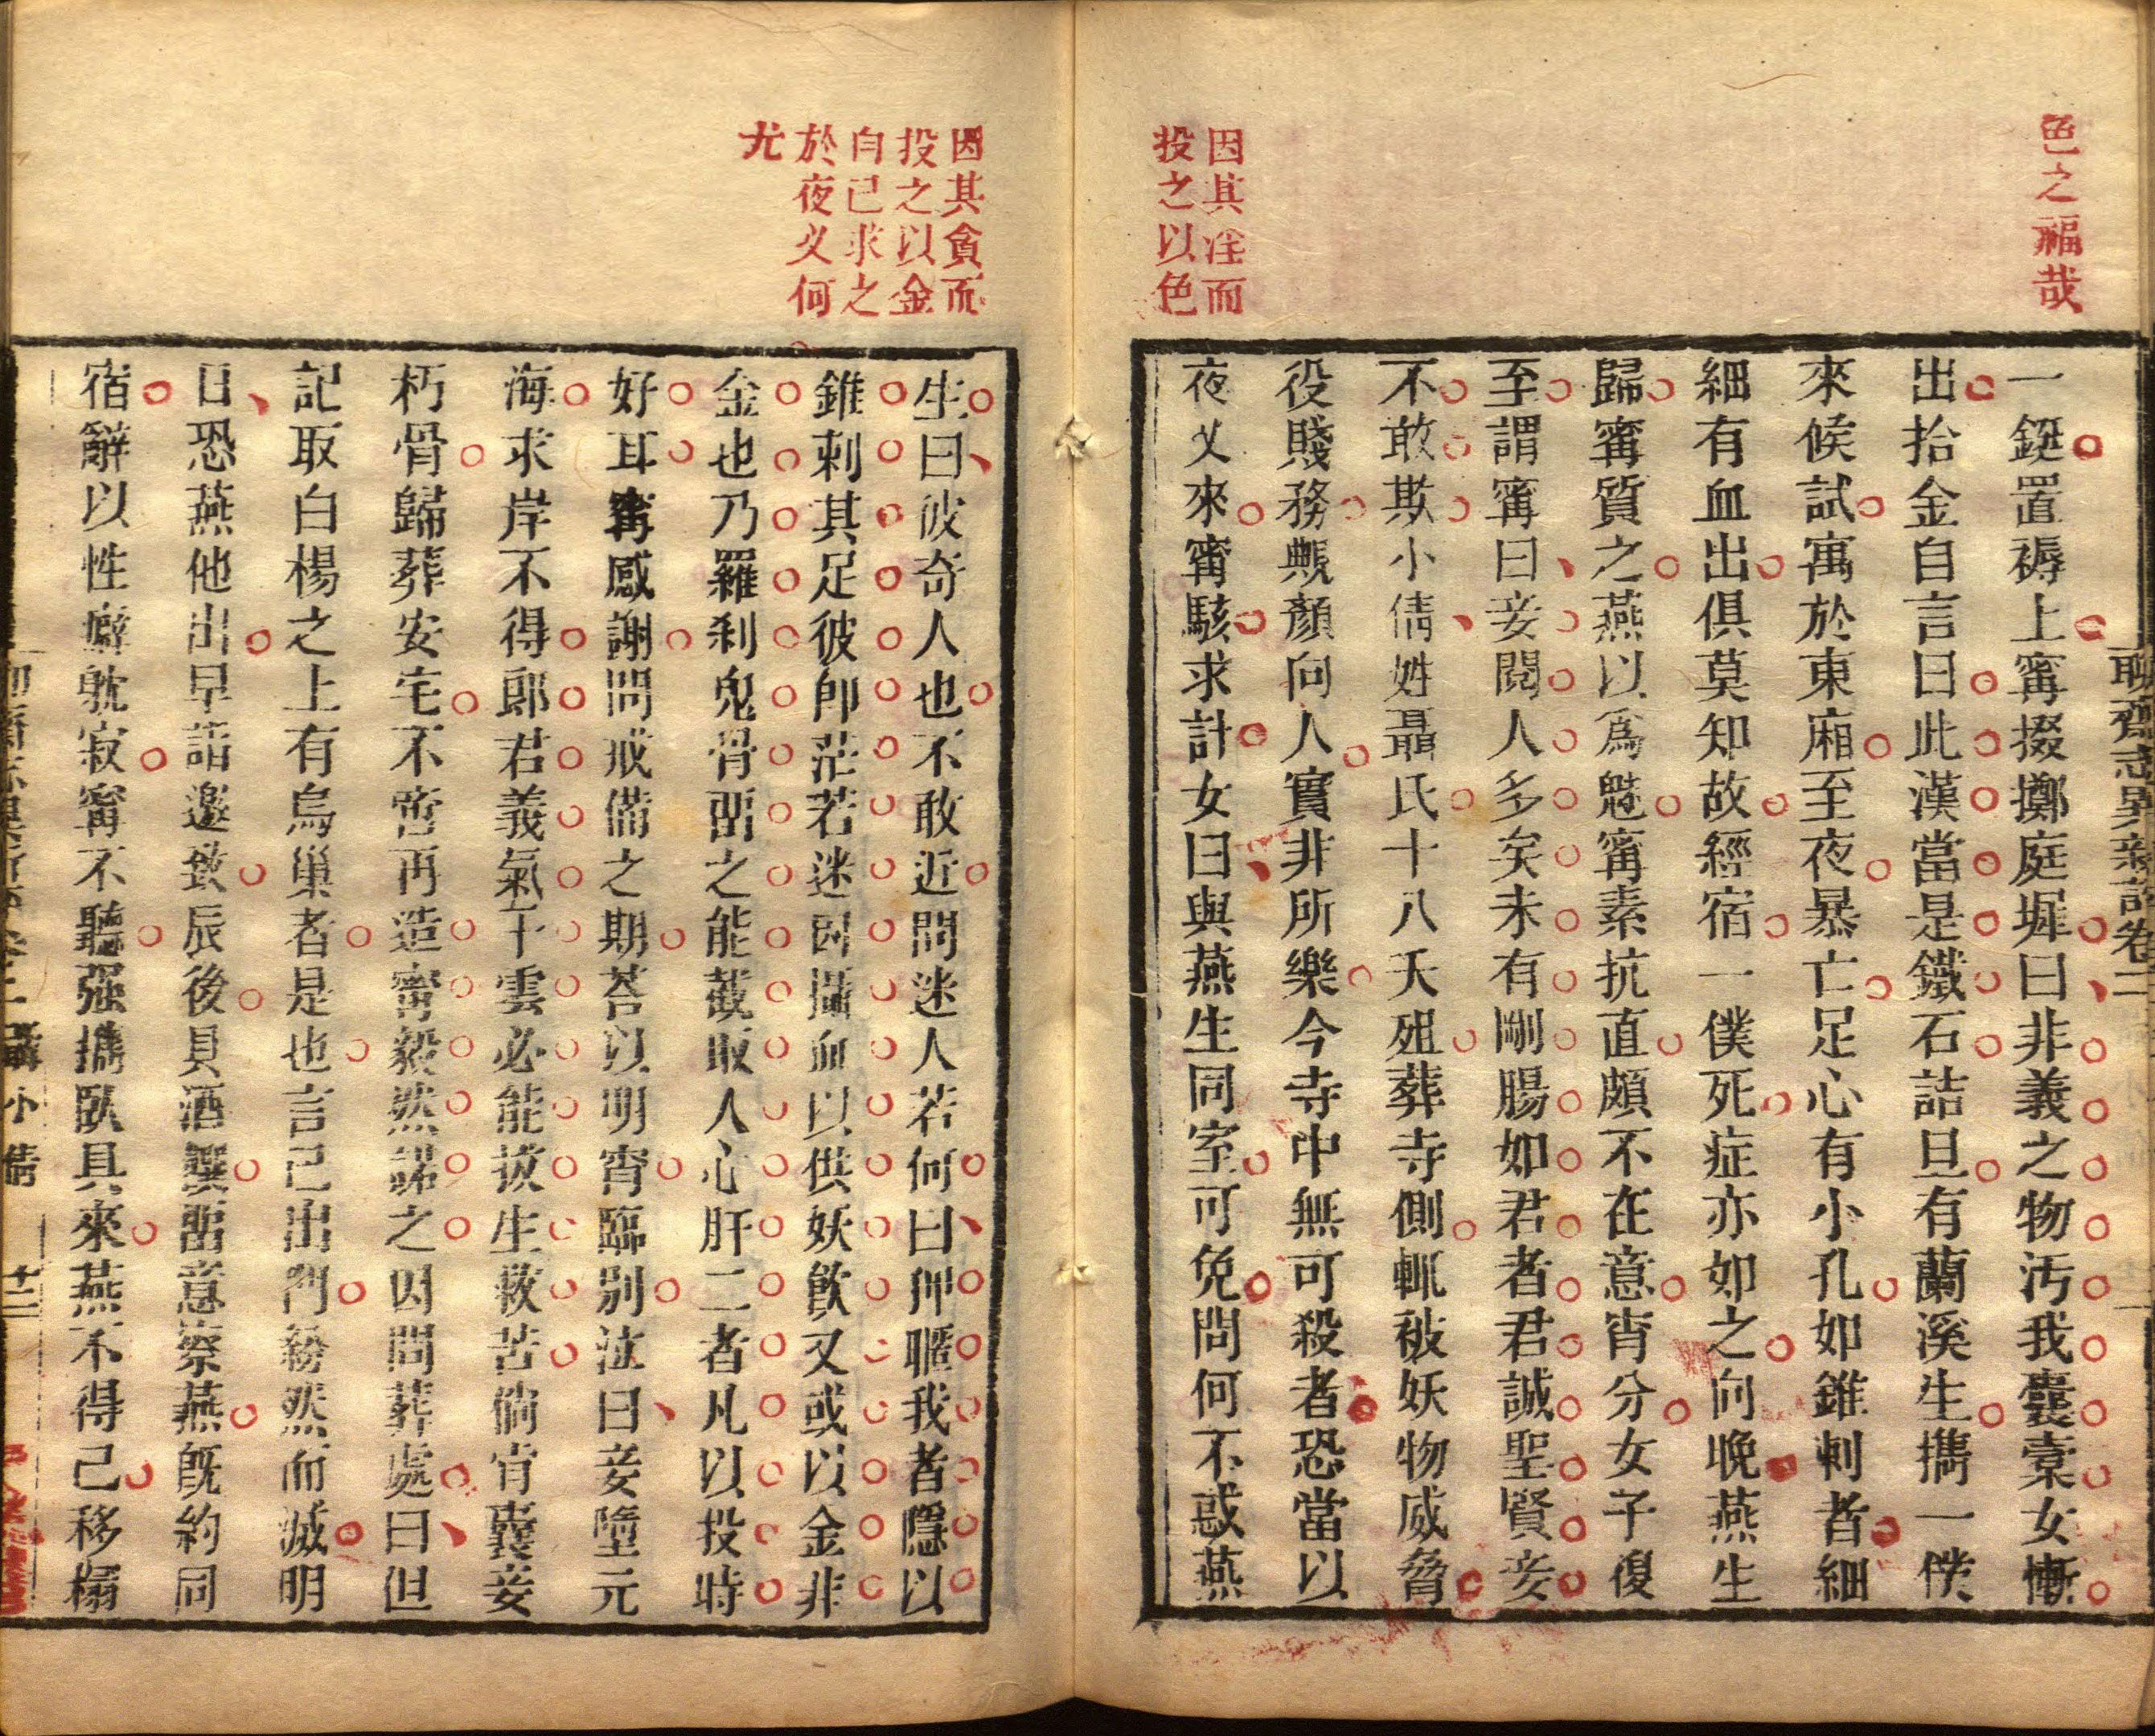 色之福哉
因其淫而
投之以色
聊齋志異新評卷二
一鋌置褥上甯掇擲庭墀曰非義之物汚我囊槖女慚
出拾金自言曰此漢當是鐵石詰旦有蘭溪生攜一僕
來候試寓於東廂至夜暴亡足心有小孔如錐刺者細
細有血出俱莫知故經宿一僕死症亦如之向晚燕生
歸甯質之燕以爲魅甯素抗直頗不在意宵分女子復
至謂甯曰妾閱人多矣未有剛腸如君者君誠聖賢妾
不敢欺小倩姓聶氏十八夭殂葬寺側輒被妖物威脅
役賤務覥顏向人實非所樂今寺中無可殺者恐當以
夜乂來甯駭求計女曰與燕生同室可免問何不惑燕
因其貪而
投之以金
自己求之
於夜义何
尤
生曰彼奇人也不敢近問迷人若何曰狎暱我者隱以
錐刺其足彼卽茫若迷因攝血以供妖飮又或以金非
金也乃羅刹鬼骨畱之能截取人心肝二者凡以投時
好耳甯感謝問戒備之期荅以明宵臨別泣曰妾墮元
海求岸不得郎君義氣干雲必能拔生救苦倘肯囊妾
朽骨歸葬安宅不啻再造甯毅然諾之因問葬處曰但
記取白楊之上有烏巢者是也言已出門紛然而滅明
日恐燕他出早詣邀致辰後具酒饌畱意察燕旣約同
宿辭以性癖躭寂甯不聽强攜臥具來燕不得已移榻
聶小倩
十二